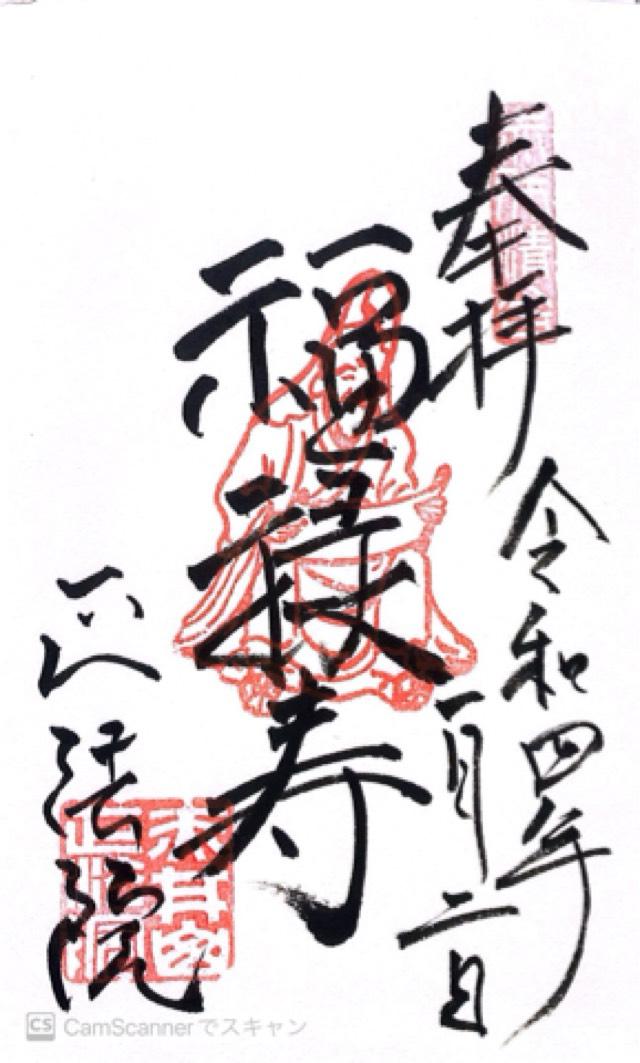 奉拝
令和四年
一月二日
福禄寿
正法院
CS CamScannerでスキャン